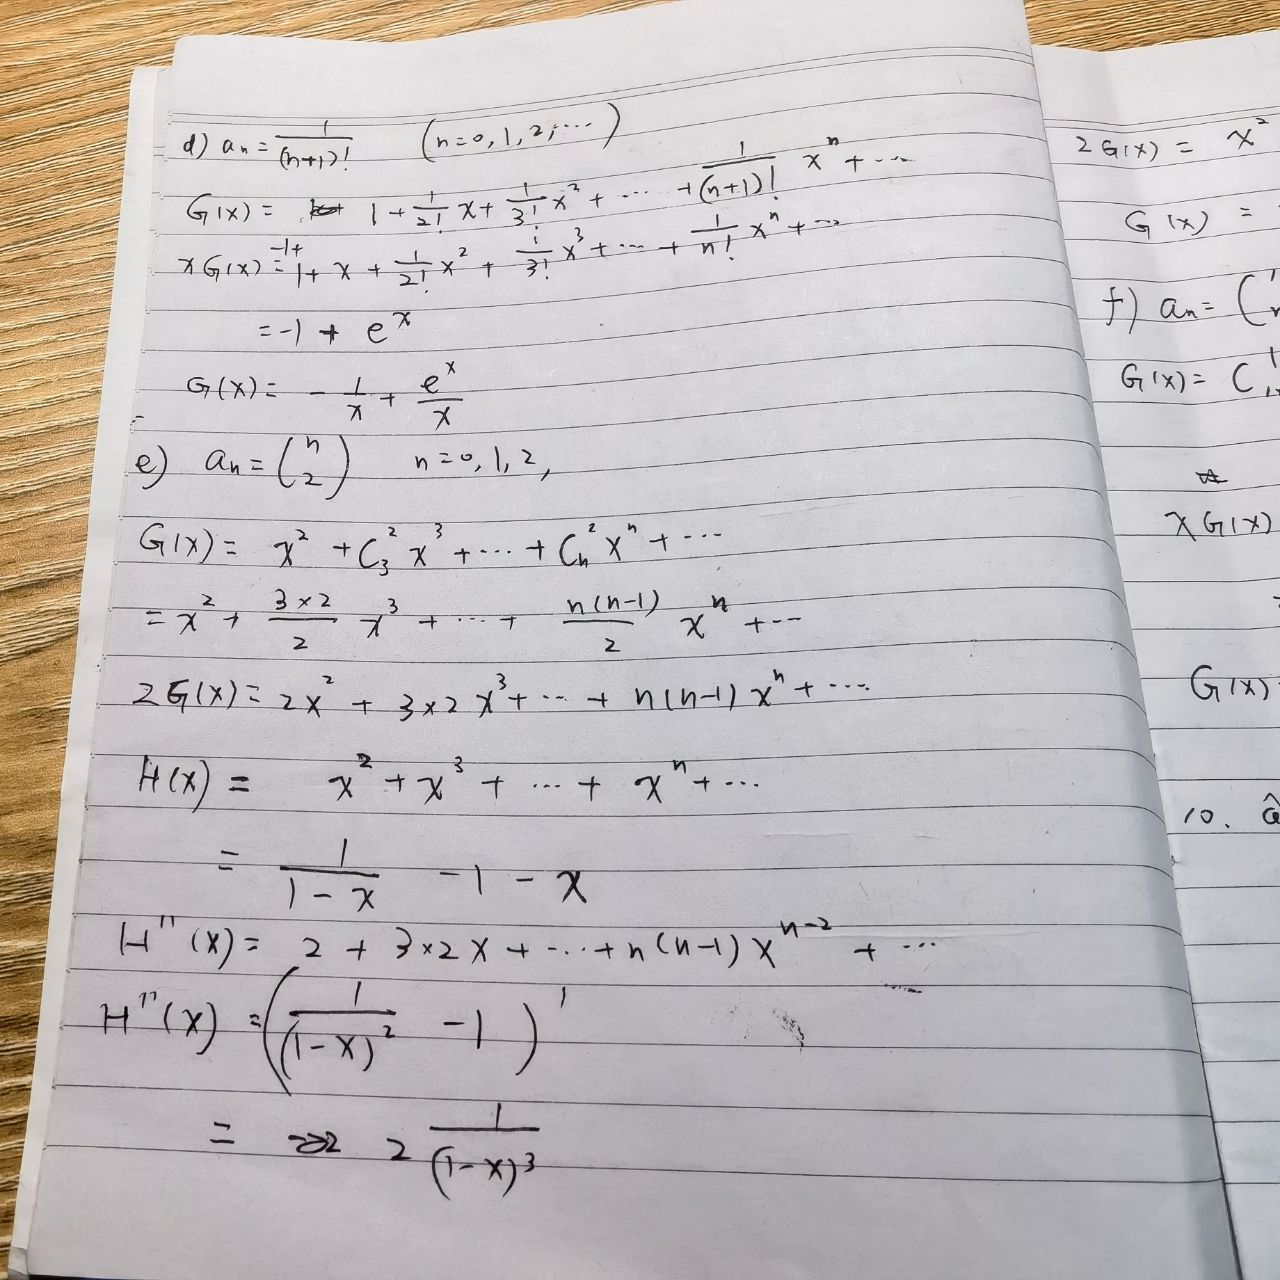 d) aₙ = 1/(n+1)! (n=0,1,2,⋯)
G(x) = 1 + 1/2! x + 1/3! x² + ⋯ + 1/(n+1)! xⁿ + ⋯
xG(x) = -1+ 1 + x + 1/2! x² + 1/3! x³ + ⋯ + 1/n! xⁿ + ⋯
= -1 + eˣ
G(x) = - 1/x + eˣ/x
e) aₙ = (n 2) n=0,1,2,
G(x) = x² + C₃² x³ + ⋯ + Cₙ² xⁿ + ⋯
= x² + 3×2/2 x³ + ⋯ + n(n-1)/2 xⁿ + ⋯
2G(x) = 2x² + 3×2 x³ + ⋯ + n(n-1) xⁿ + ⋯
H(x) = x² + x³ + ⋯ + xⁿ + ⋯
= 1/(1-x) - 1 - x
H''(x) = 2 + 3×2x + ⋯ + n(n-1) xⁿ⁻² + ⋯
H''(x) = (1/(1-x)² - 1)'
= 2 1/(1-x)³
2G(x) = x²
G(x) =
f) aₙ = (
G(x) = C
xG(x)
G(x)
10.